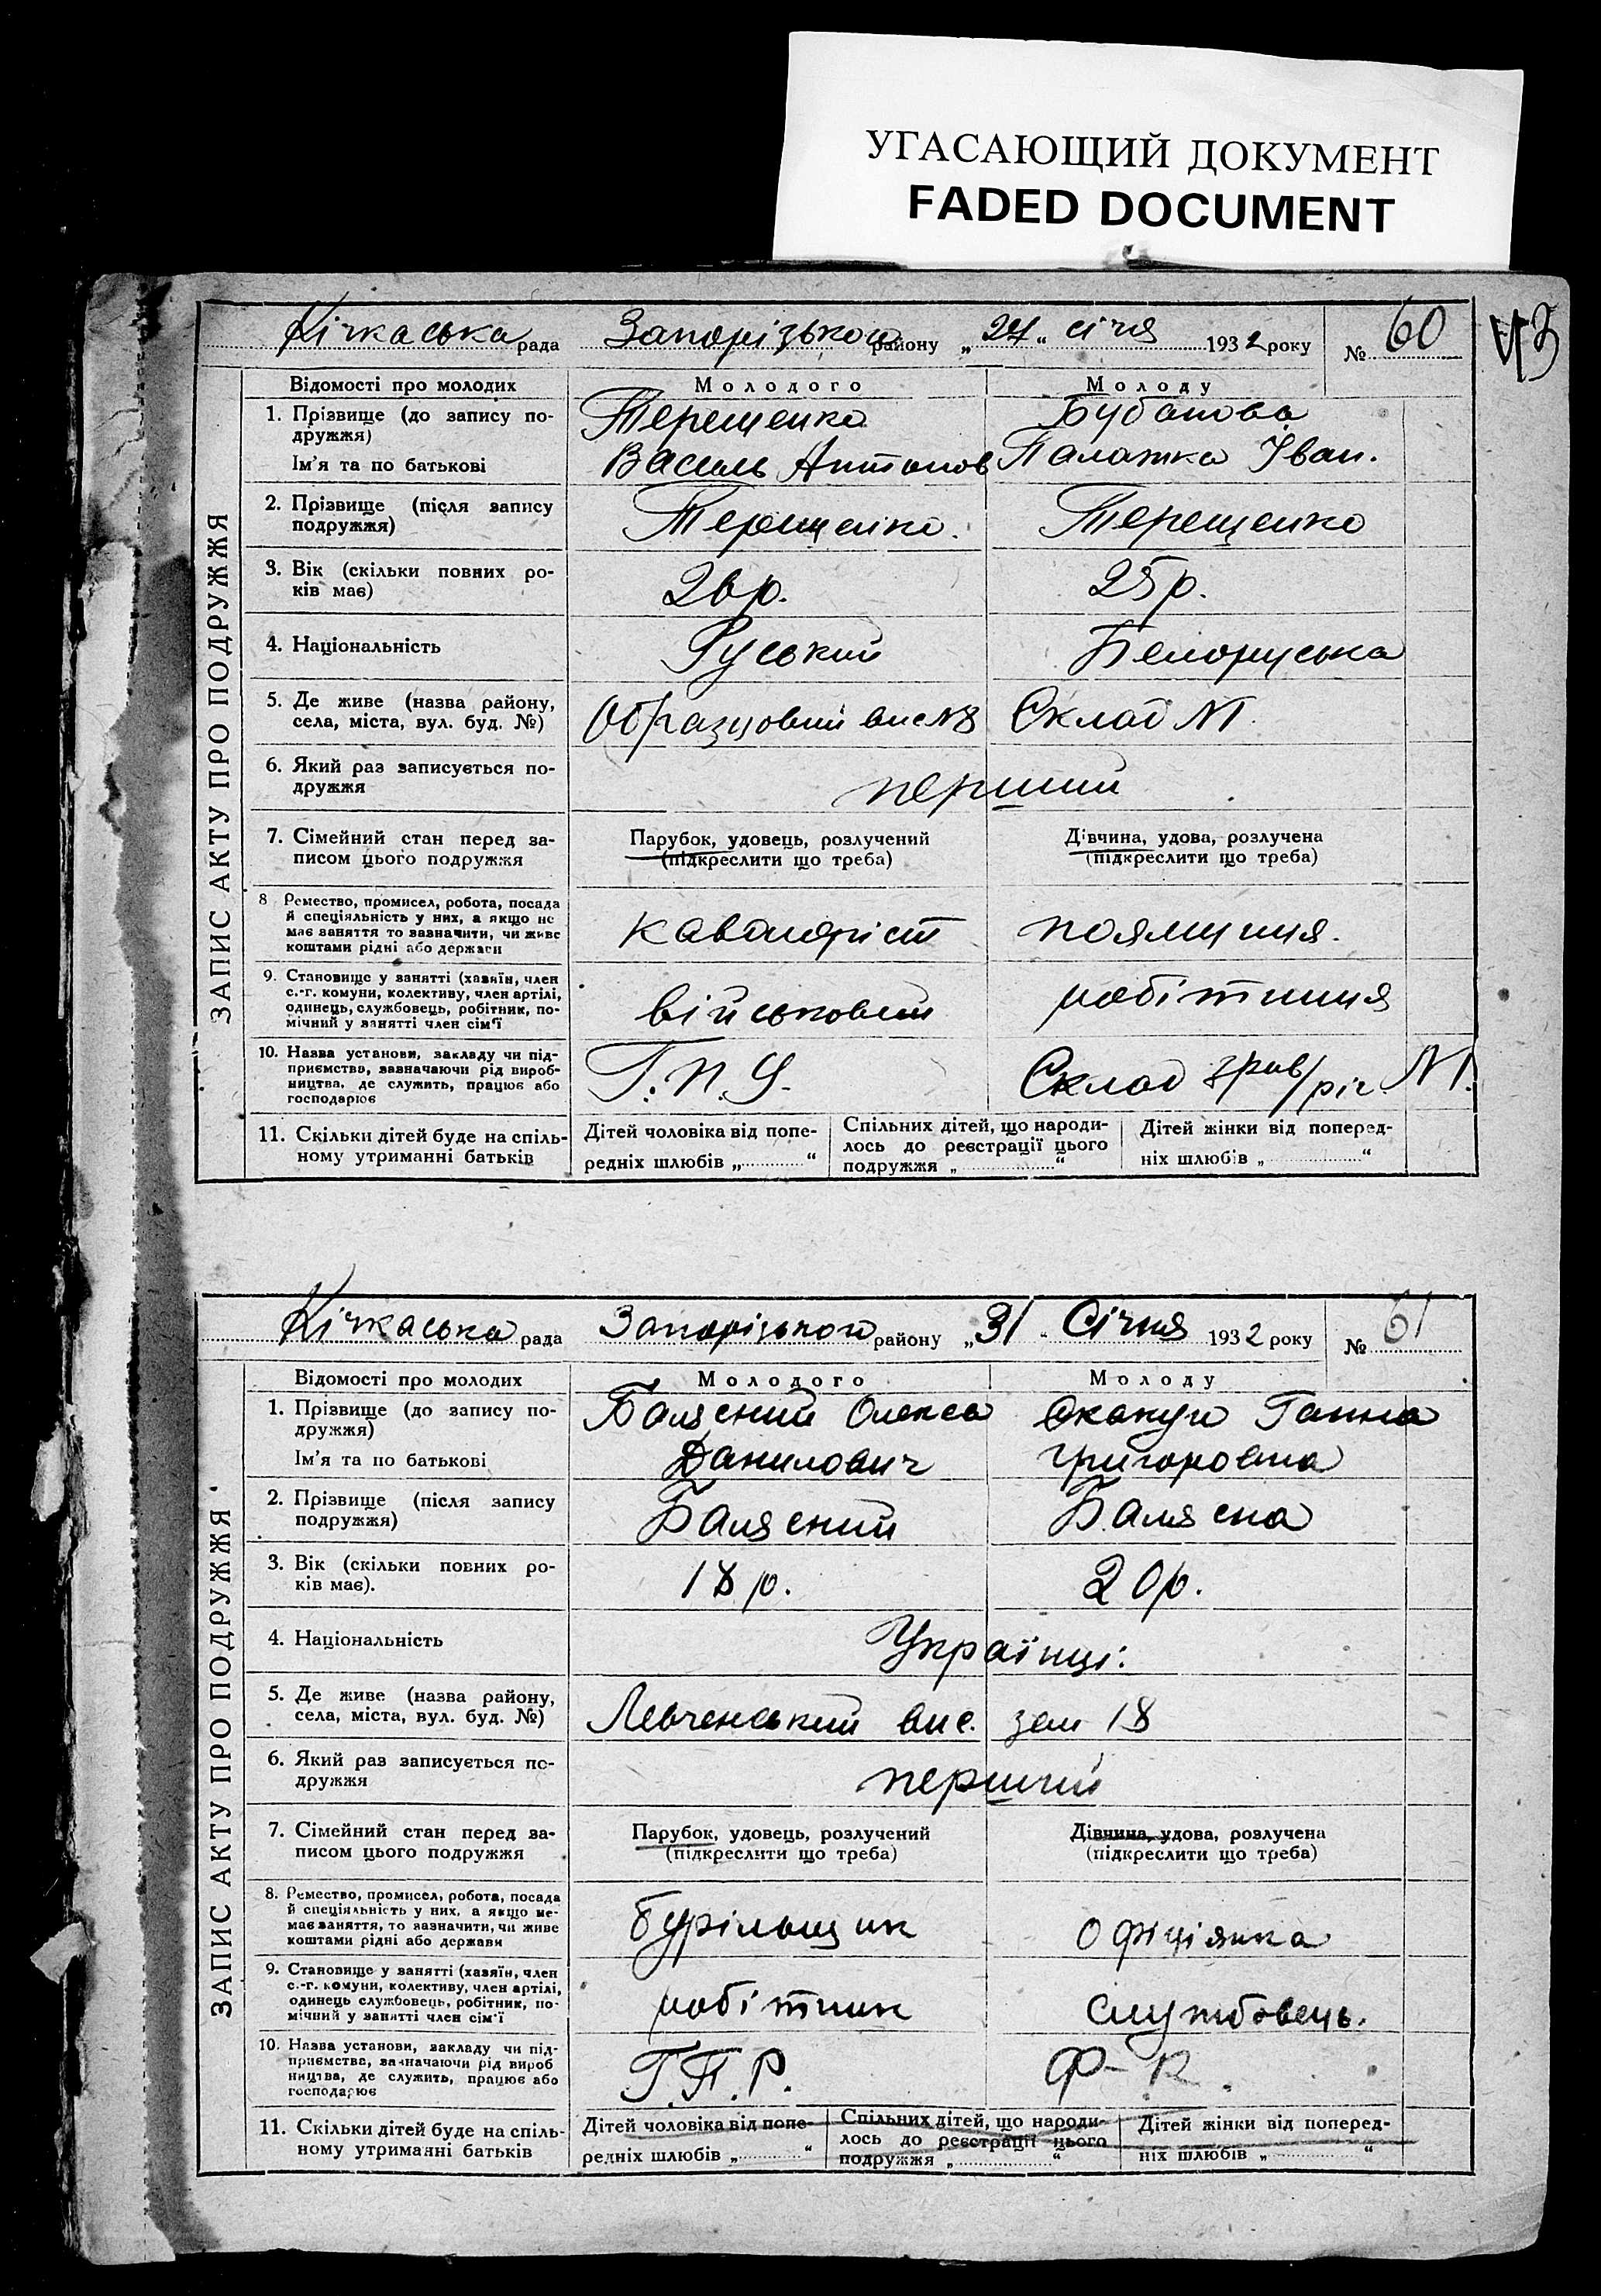 УГАСАЮЩИЙ ДОКУМЕНТ
FADED DOCUMENT
ЗАПИС АКТУ ПРО ПОДРУЖЖЯ
Кічкаська рада Запорізького району „27“ січня 1932 року № 60
Відомості про молодих Молодого Молоду
1. Прізвище (до запису по-
дружжя) Терещенко Бубанова
Ім'я та по батькові Василь Антонов Палажка Іван.
2. Прізвище (після запису
подружжя) Терещенко. Терещенко
3. Вік (скільки повних ро-
ків має) 26 р. 25 р.
4. Національність Руський Белоруська
5. Де живе (назва району,
села, міста, вул. буд. №) Образцовий вис №8 Склад №1.
6. Який раз записується по-
дружжя перший
7. Сімейний стан перед за-
писом цього подружжя
Парубок, удовець, розлучений
(підкреслити що треба)
Дівчина, удова, розлучена
(підкреслити що треба)
8 Ремество, промисел, робота, посада
й спеціяльність у них, а якщо не
має заняття то зазначити, чи живе
коштами рідні або держави
кавалеріст
9. Становище у занятті (хазяїн, член
с.-г. комуни, колективу, член артілі,
одинець, службовець, робітник, по-
мічний у занятті член сім'ї
військовий робітниця
10. Назва установи, закладу чи під-
приємства, зазначаючи рід вироб-
ництва, де служить, працює або
господарює
Г.П.У. Склад №1.
11. Скільки дітей буде на спіль-
ному утриманні батьків
Дітей чоловіка від попе-
редніх шлюбів „ “
Спільних дітей, що народи-
лось до реєстрації цього
подружжя „ “
Дітей жінки від поперед-
ніх шлюбів „ “
ЗАПИС АКТУ ПРО ПОДРУЖЖЯ
Кічкаська рада Запорізького району „31“ Січня 1932 року № 61
Відомості про молодих Молодого Молоду
1. Прізвище (до запису по-
дружжя) Балясний Олекса Скакун Ганна
Ім'я та по батькові Данилович Григоровна
2. Прізвище (після запису
подружжя) Балясний Балясна
3. Вік (скільки повних ро-
ків має). 18 р. 20 р.
4. Національність Українці.
5. Де живе (назва району,
села, міста, вул. буд. №) Левченський вис. 18
6. Який раз записується по-
дружжя перший
7. Сімейний стан перед за-
писом цього подружжя
Парубок, удовець, розлучений
(підкреслити що треба)
Дівчина, удова, розлучена
(підкреслити що треба)
8. Ремество, промисел, робота, посада
й спеціяльність у них, а якщо не-
має заняття, то зазначити, чи живе
коштами рідні або держави
бурільщик офіціянка
9. Становище у занятті (хазяїн, член
с.-г. комуни, колективу, член артілі,
одинець службовець, робітник, по-
мічний у занятті член сім'ї
робітник службовець.
10. Назва установи, закладу чи під-
приємства, зазначаючи рід вироб
ництва, де служить, працює або
господарює
Г.П.Р. Ф-К.
11. Скільки дітей буде на спіль-
ному утриманні батьків
Дітей чоловіка від попе-
редніх шлюбів „ “
Спільних дітей, що народи-
лось до реєстрації цього
подружжя „ “
Дітей жінки від поперед-
ніх шлюбів „ “